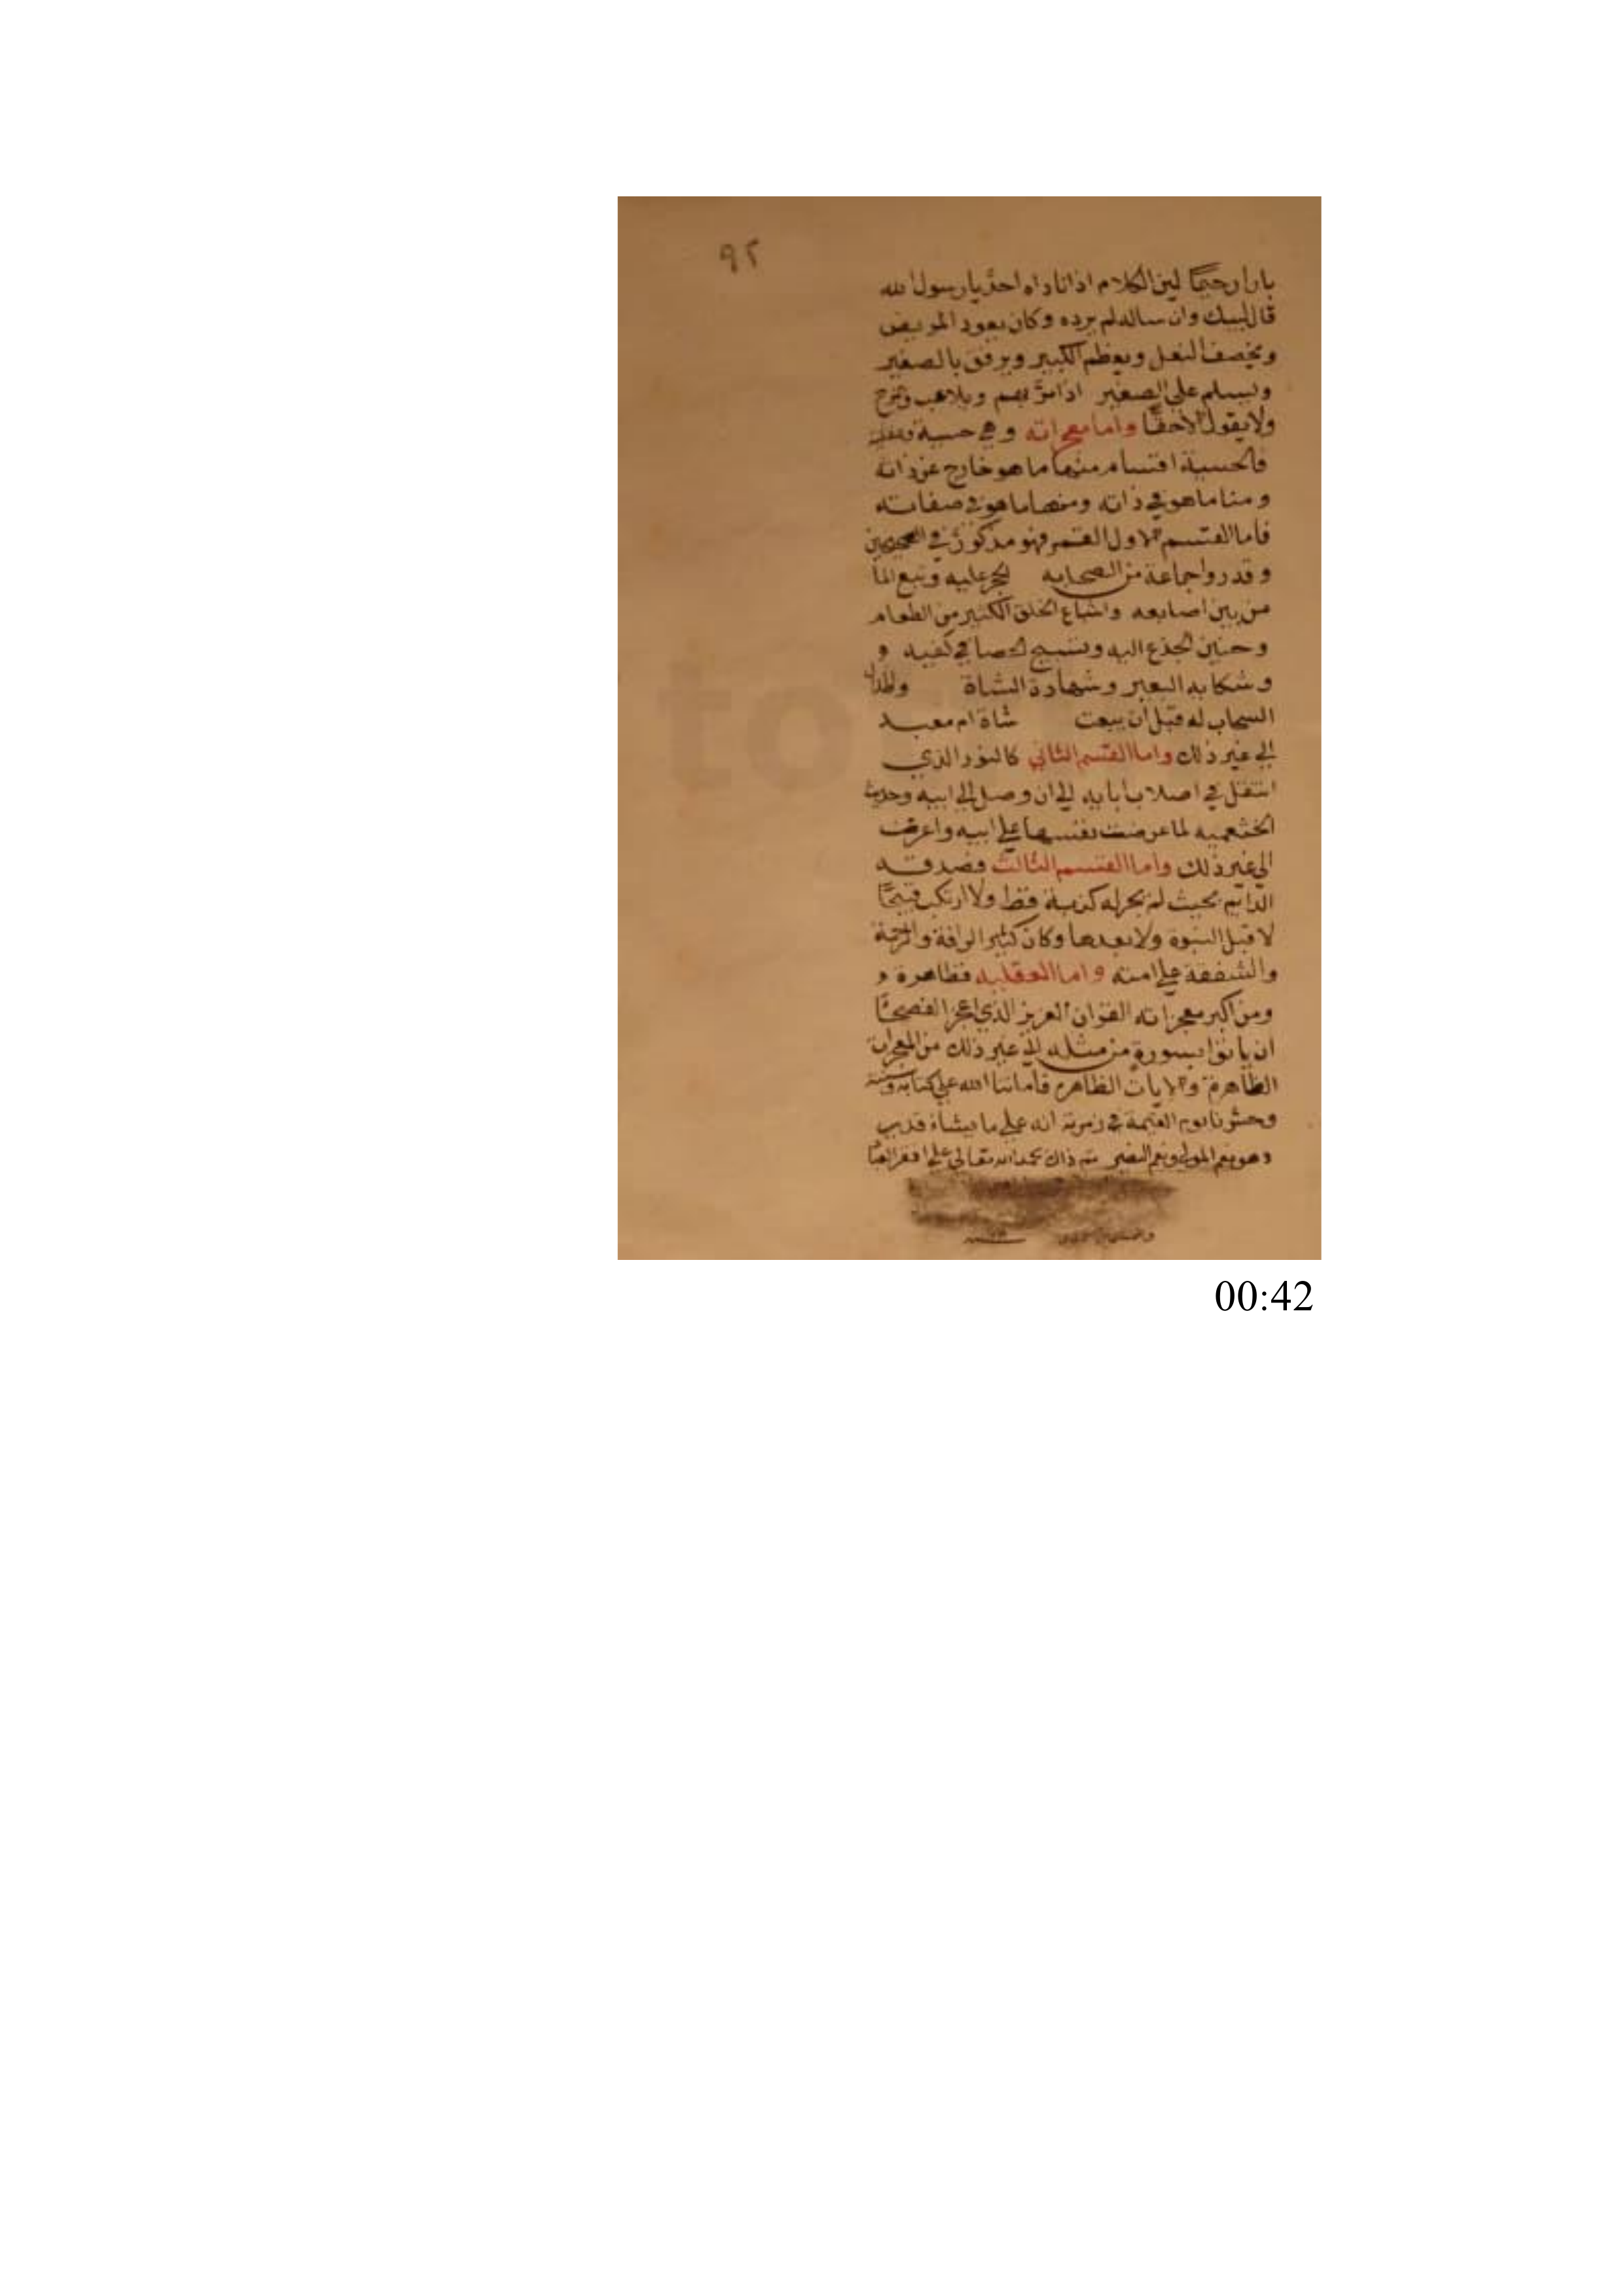 ٩٢
بارا رحيمًا لين الكلام اذا ناداه احدٌ يا رسول الله
قال لبيك وان ساله لم يرده وكان يعود المريض
ويخصف النعل ويعظم الكبير ويرفق بالصغير
ويسلم على الصغير اذا مرَّ بهم ويلاعب ويمزح
ولا يقول الا حقًا واما معجزاته وهي حسية
فالحسية اقسام منها ما هو خارج عن ذاته
ومنا ما هو في ذاته ومنها ما هو في صفاته
فاما القسم الاول القمر فهو مذكورٌ في الصحيحين
وقد رواجماعة من الصحابه الحجر عليه ونبع الما
من بين اصابعه واشباع الخلق الكثير من الطعام
وحنين الجذع اليه وتسبيح الحصا في كفيه و
وشكايه البعير وشهادة الشاة
السحاب له قبل ان يبعث شاة ام معبد
الي غير ذلك واما القسم الثاني كالنور الذي
انتقل في اصلاب ابايه الي ان وصل الي ابيه وحديث
الخثعميه لما عرضت نفسها علي ابيه واعرض
الي غير ذلك واما القسم الثالث فصدقه
الدايم بحيث لم يجر له كذبة قط ولا ارتكب قبيحًا
لا قبل النبوة ولا بعدها وكان كثير الرافة والرحمة
والشفقة علي امته واما العقليه فظاهرة و
ومن اكبر معجزاته القران العزيز الذي اعجز الفصحا
ان ياتوا بسورة من مثله الي غير ذلك من المعجزات
الظاهرة والايات الظاهره فاماتنا الله علي كتابه وسنته
وحشرنا يوم القيمة في زمرته انه علي ما يشاء قدير
وهو نعم المولي ونعم النصير تم ذلك بحمد الله تعالى علي افقر العباد
00:42